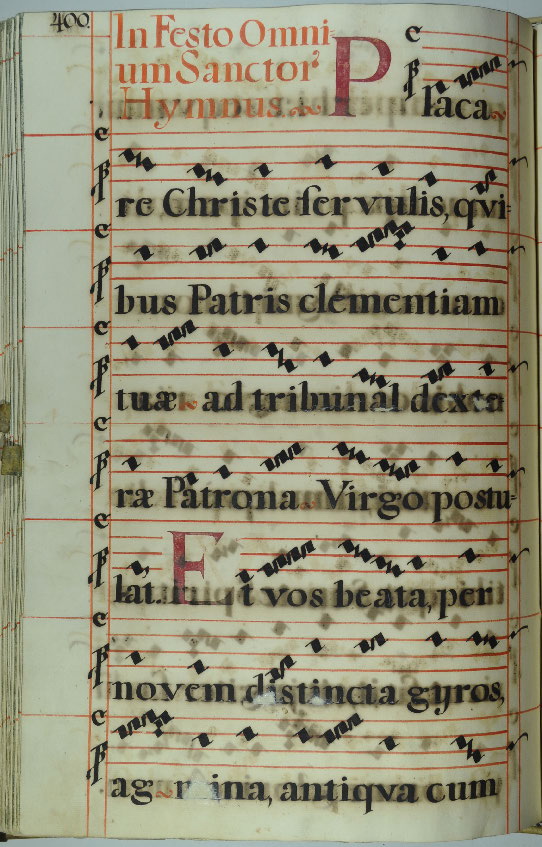 400.
In Festo Omni-
um Sanctor
Hymnus
Placa
re Christe servulis, qvi-
bus Patris clémentiam
tuæ ad tribunal dexte
ræ Patrona Virgo postu-
lat. Et vos beata, per
novem distincta gyros,
agmina, antiqva cum